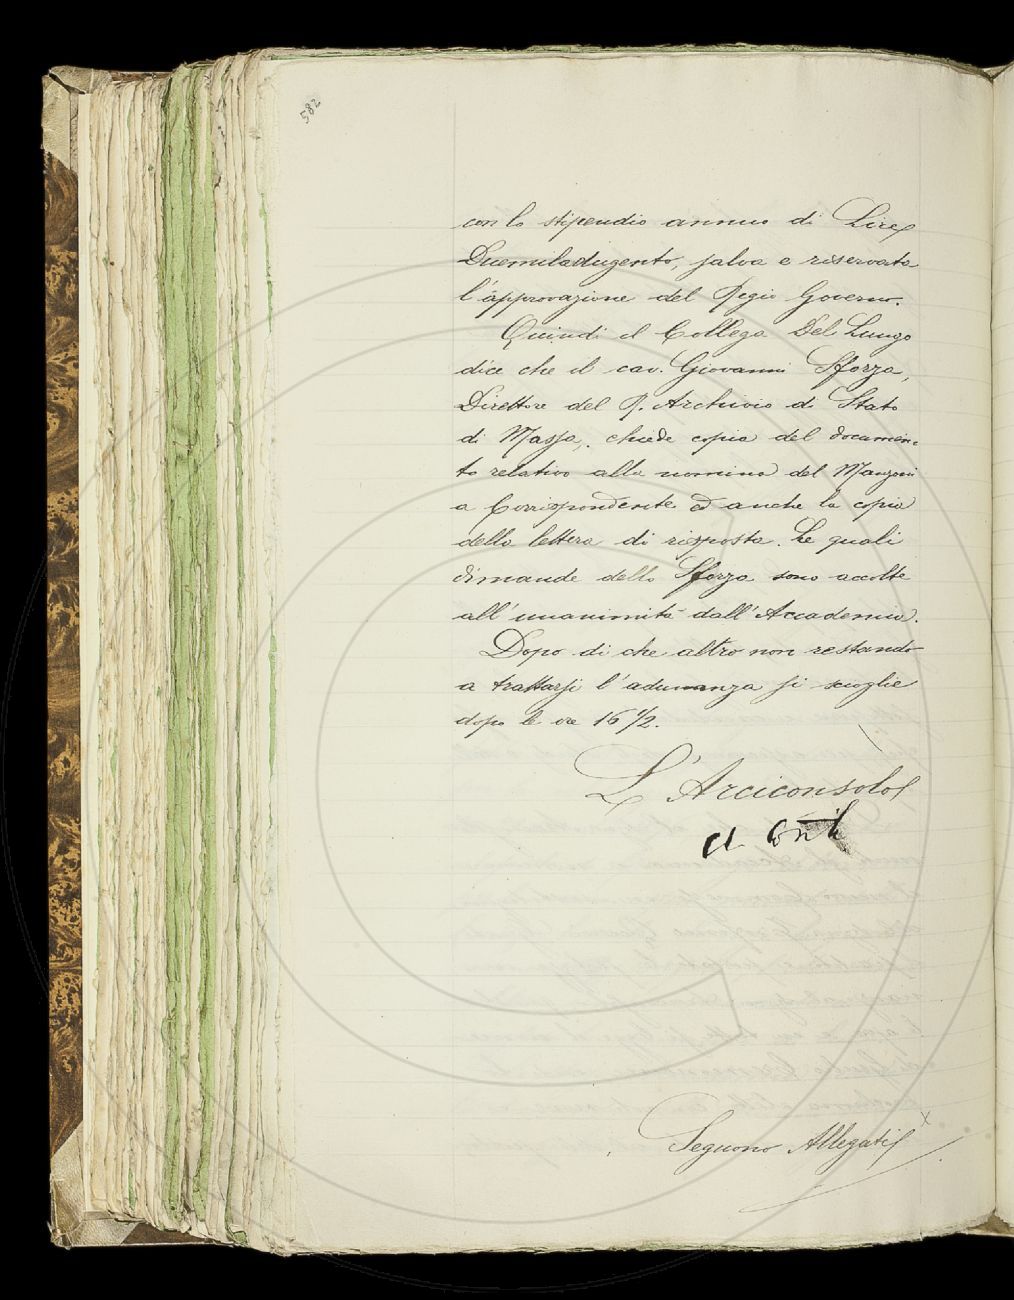 582
con lo stipendio annuo di Lire
Duemiladugento, salva e riservata
l'approvazione del Regio Governo.
Quindi il Collega Del Lungo
dice che il cav. Giovanni Sforza,
Direttore del R. Archivio di Stato
di Massa, chiede copia del documen=
to relativo alla nomina del Manzoni
a Corrispondente ed anche la copia
della lettera di risposta. Le quali
dimande dello Sforza sono accolte
all'unanimità dall'Accademia.
Dopo di che altro non restando
a trattarsi l'adunanza si scioglie
dopo le ore 16 1/2.
L'Arciconsolo
A. Conti
Seguono Allegati